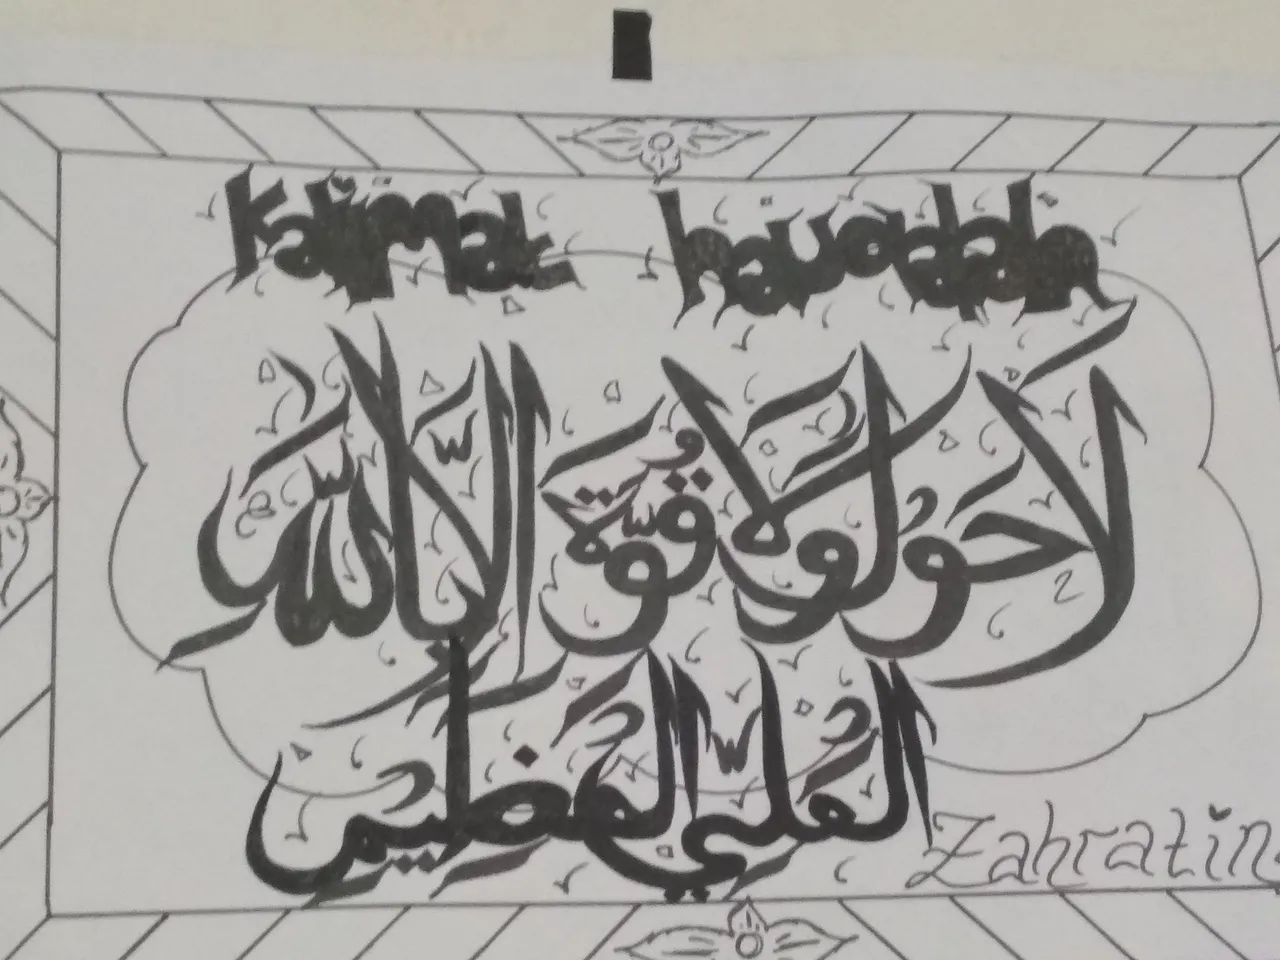 Kalimat hauqalah
لَا حَوْلَ وَلَا قُوَّةَ اِلَّا بِاللّٰهِ
الْعَلِيِّ الْعَظِيْمِ
Zahratin